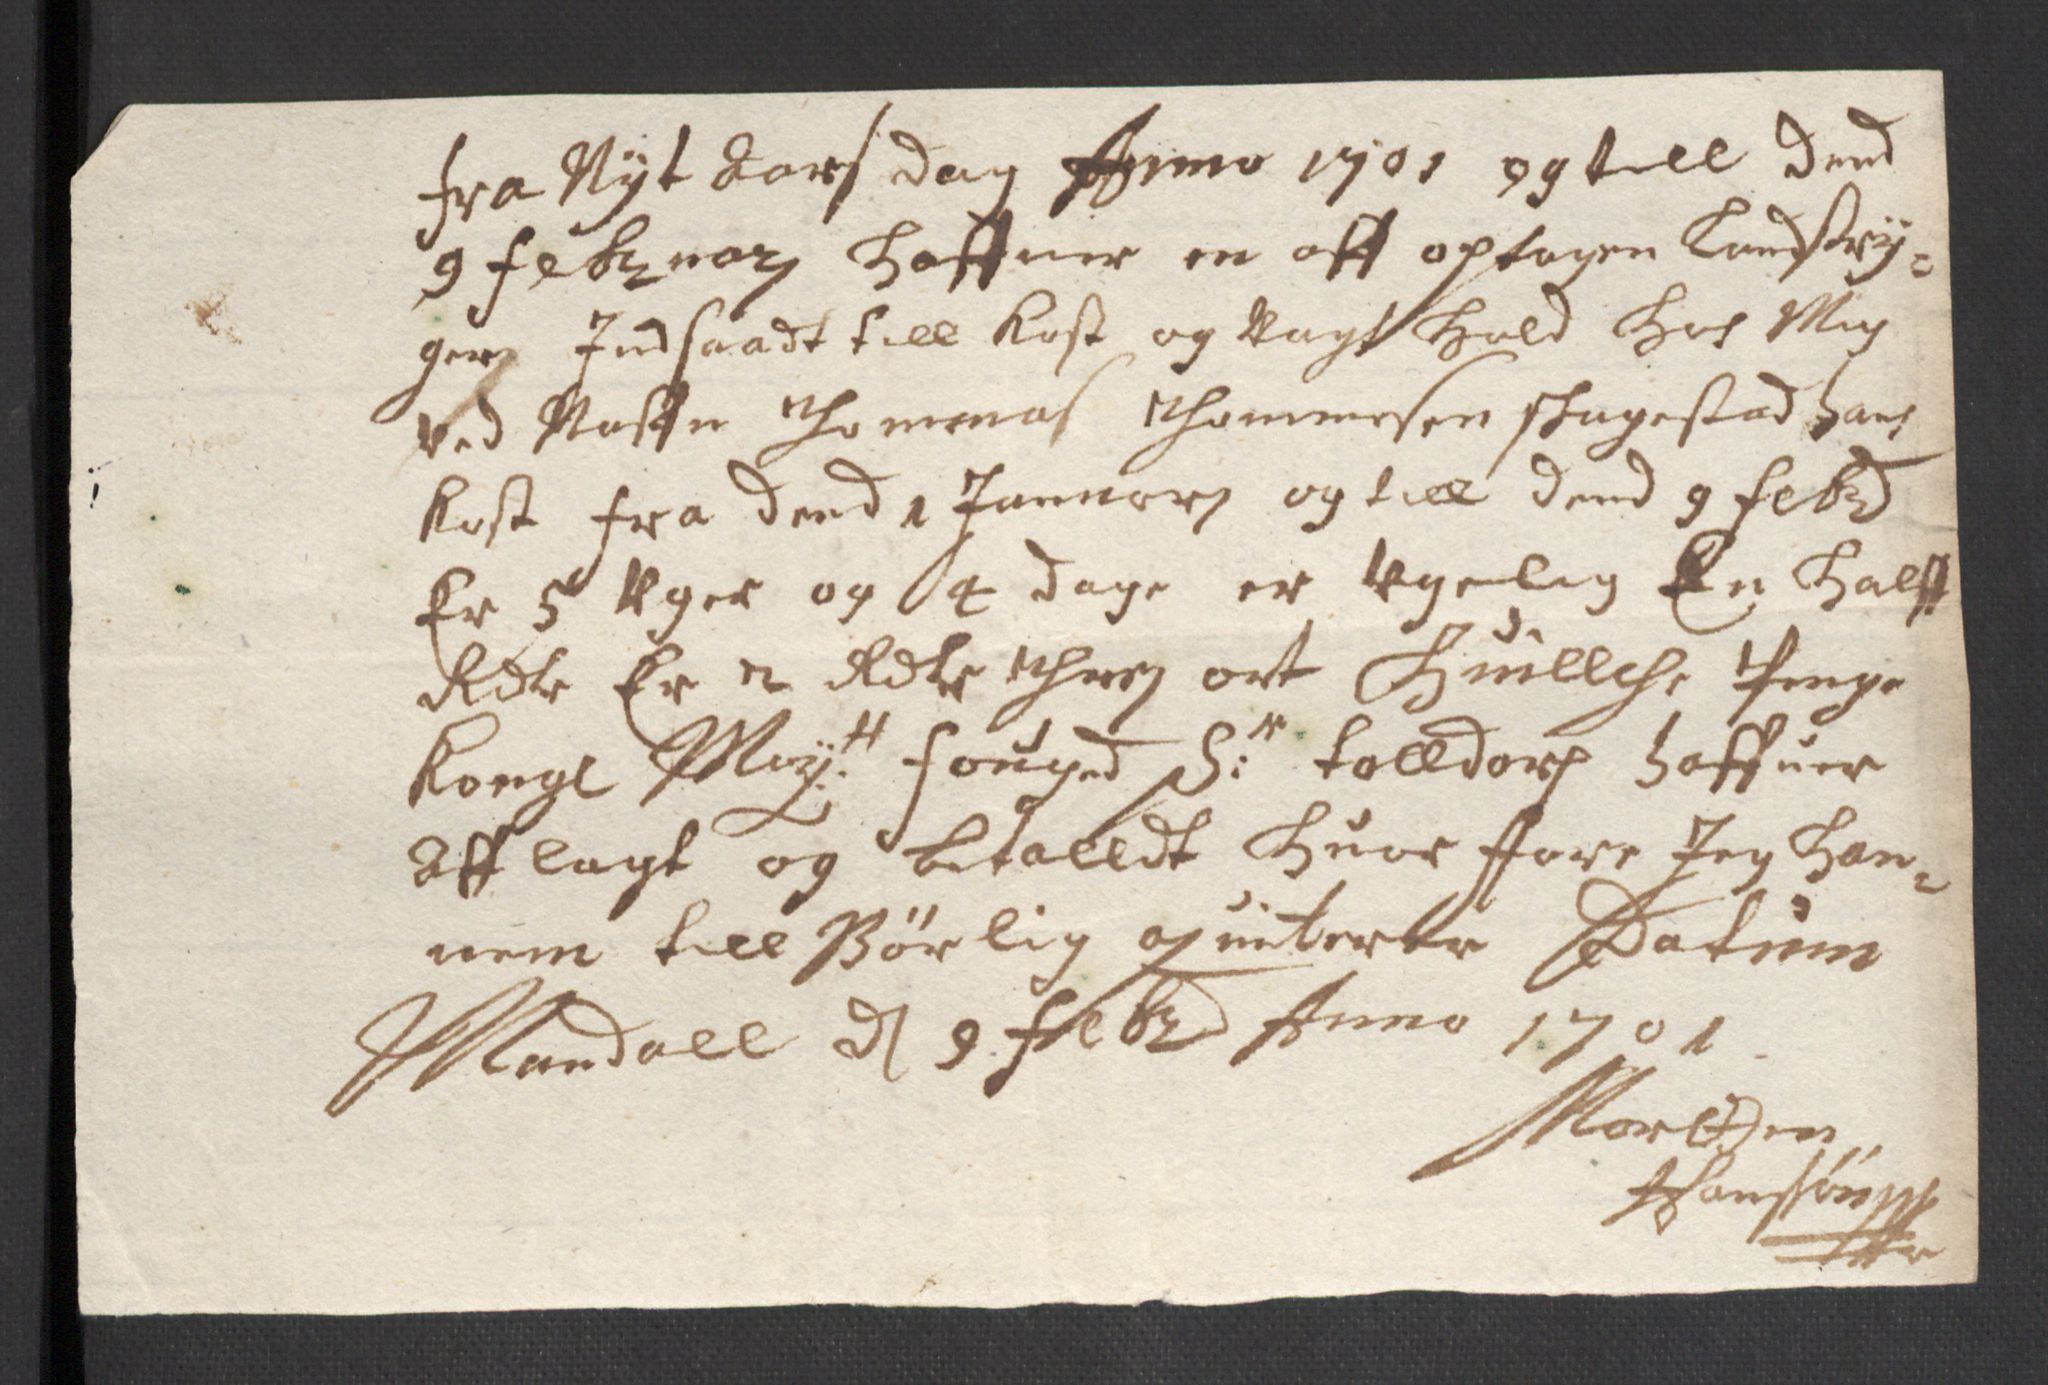 fra Nÿt aars dag Anno 1701 og till dend
9 februarj haffuer en aff optagen Landstrÿ=
gerj Indsaadt till kost og Vagt hold hos Mig
ved Naffn Thommas Thommesen skagestad hans
kost fra dend 1 Januarj og till dend 9 febr
Er 5 Uger og 4 dage er Ugelig En halff
Rdlr Er 2 Rdlr Threj ort huillche Penge
Kongl Maÿ:tt fouged Sr: tolldorph haffuer
aff lagt og betalldt huor fore Jeg han=
nem till Börlig quiterer Datum
Mandall d 9 febr Anno 1701
Mortten
Hanssön